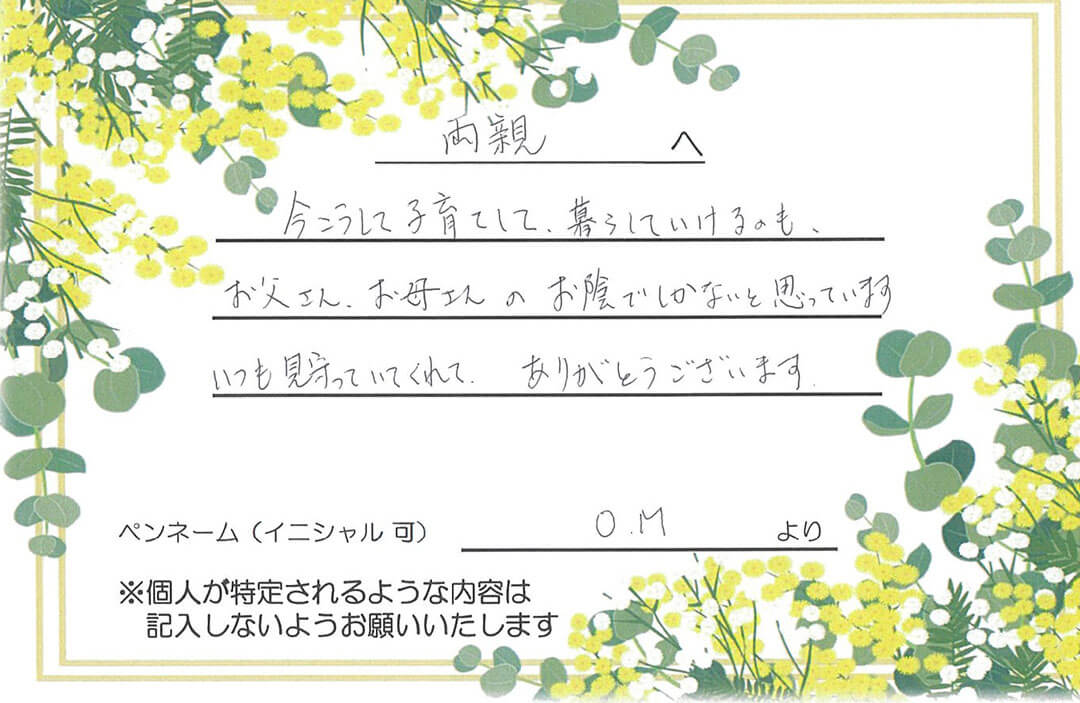 両親 へ
今こうして子育てして、暮らしていけるのも、
お父さん、お母さんの お陰でしかないと思っています
いつも見守っていてくれて、ありがとうございます。
ペンネーム(イニシャル 可) O.M より
※個人が特定されるような内容は
記入しないようお願いいたします